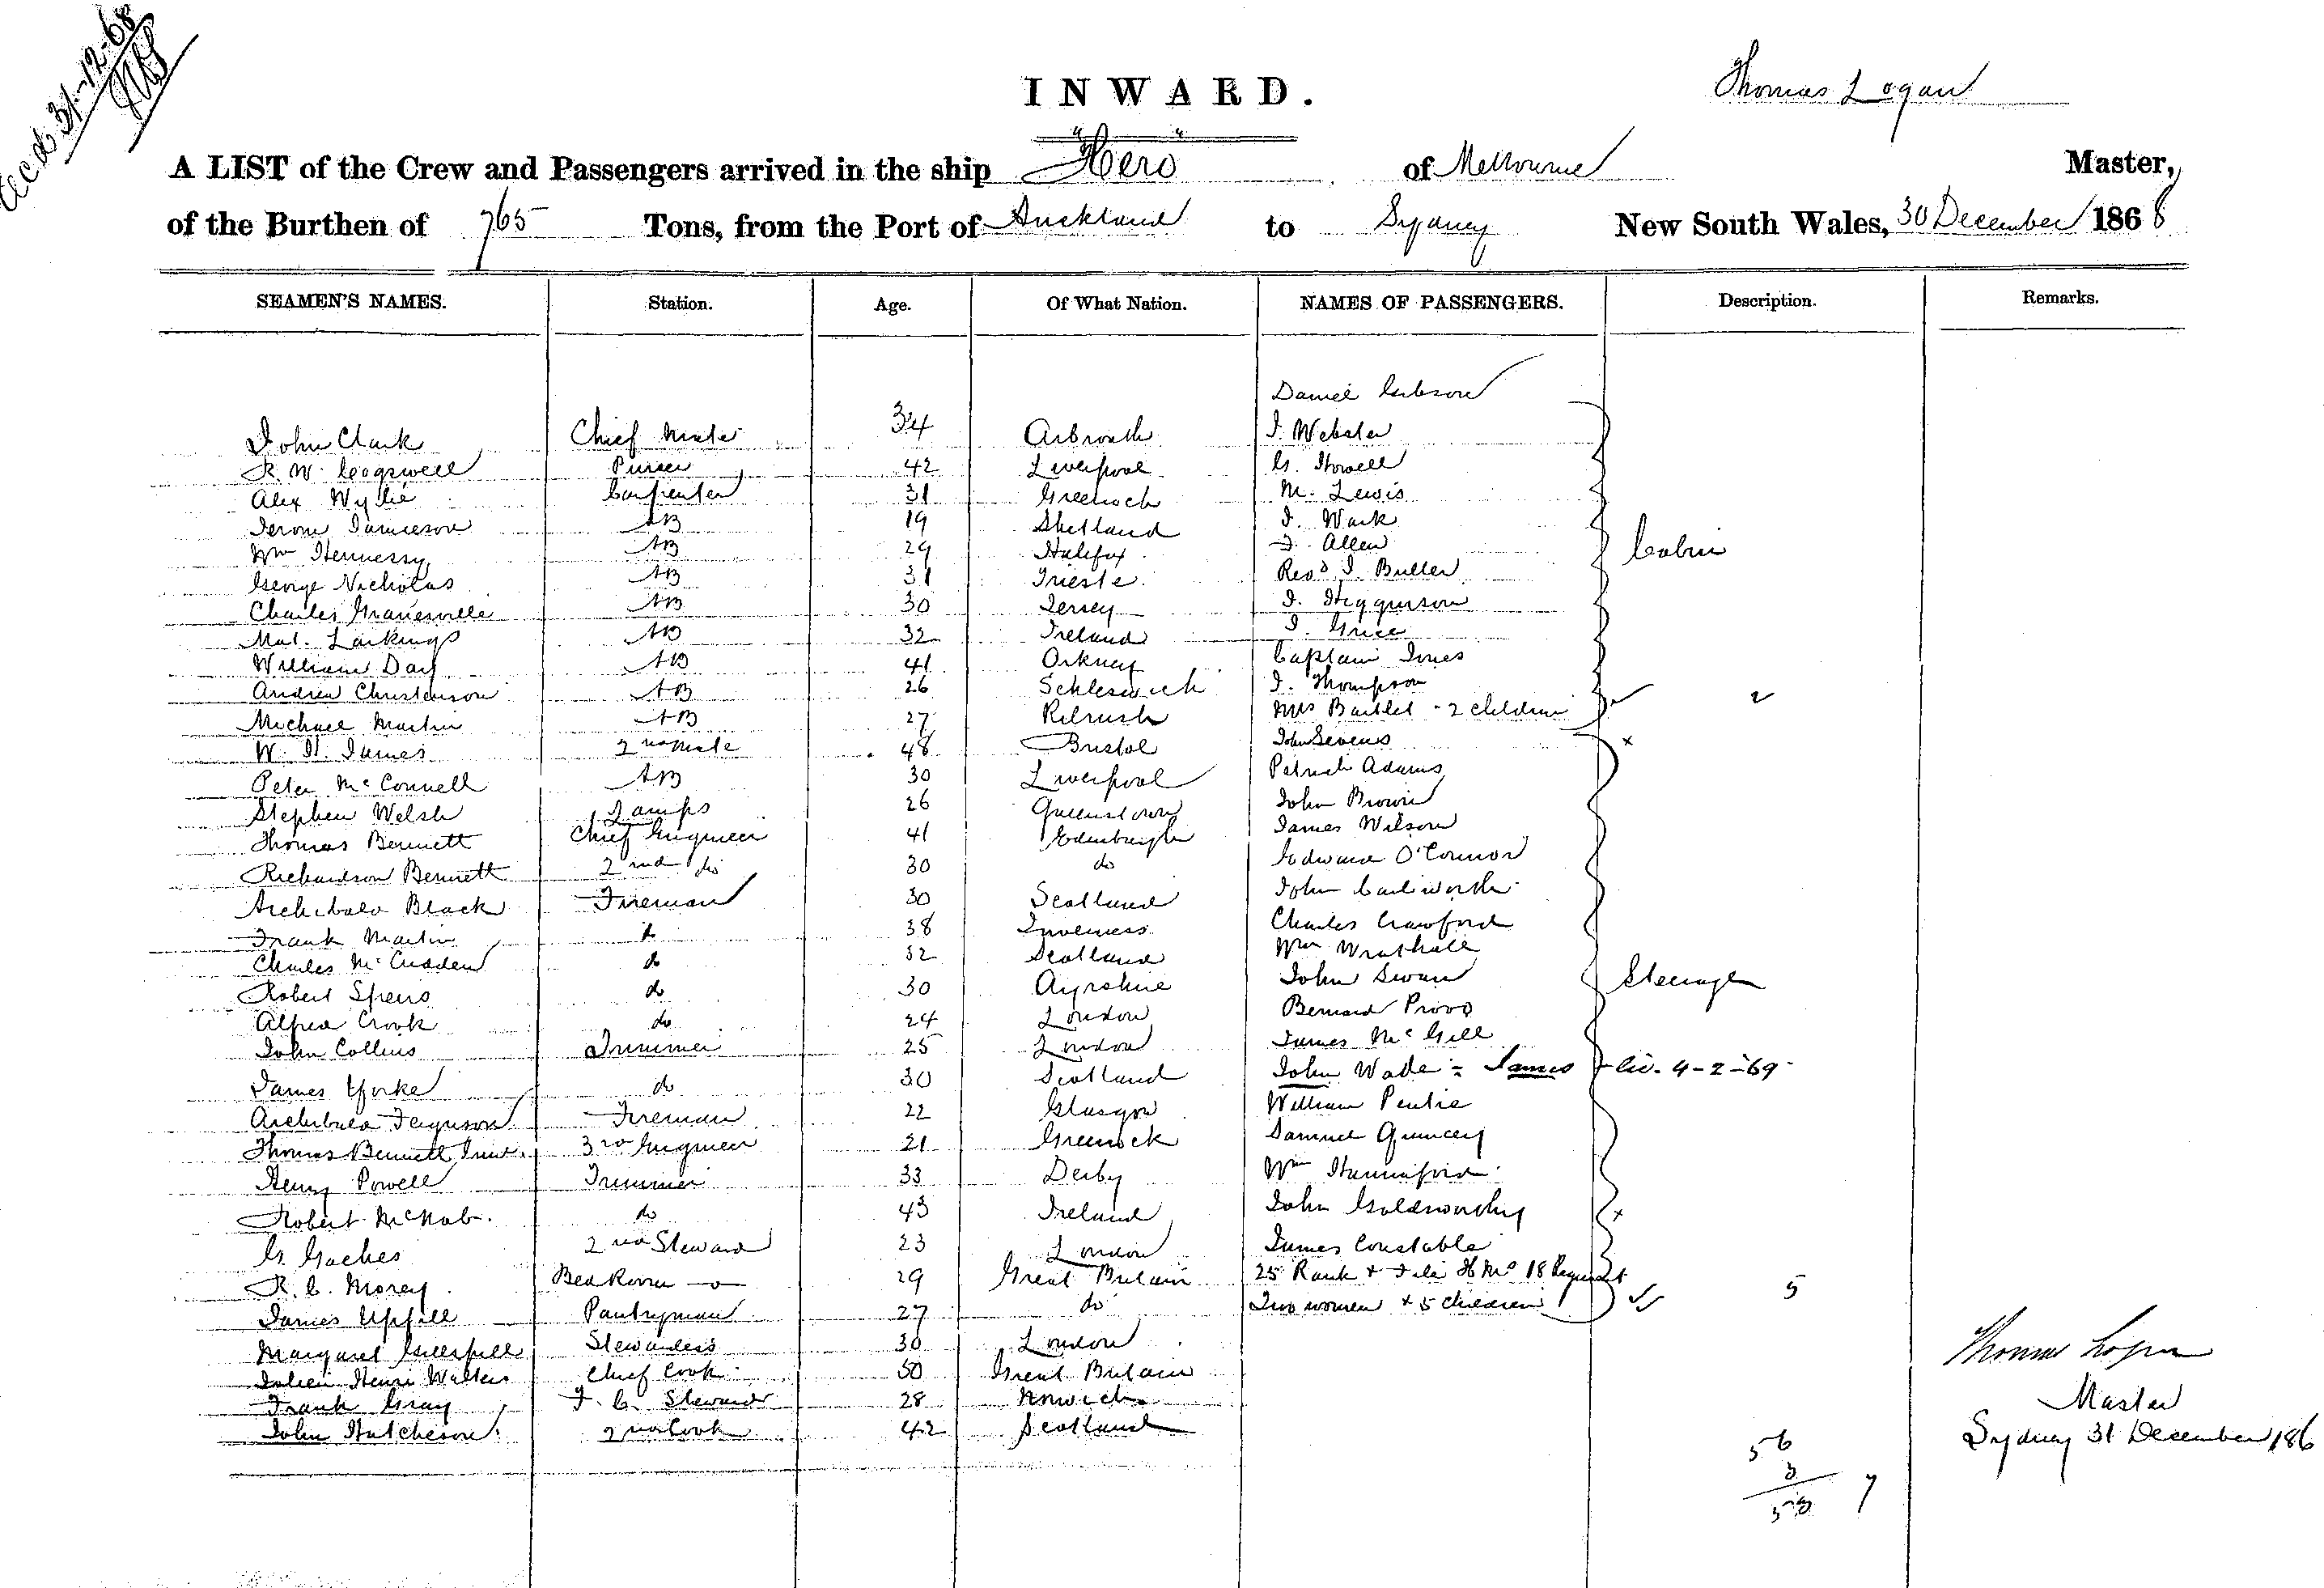 31-12-68
INWARD.
Thomas Logan
A LIST of the Crew and Passengers arrived in the ship "Hero" of Melbourne Master,
of the Burthen of 765 Tons, from the Port of Auckland to Sydney New South Wales, 30 December 1868
SEAMEN'S NAMES. Station. Age. Of What Nation. NAMES OF PASSENGERS. Description. Remarks.
Daniel Gibson
John Clark Chief Mate 34 Arbroath J. Webster
R. W. Cogswell Purser 42 Liverpool G. Howell
Alex Wylie Carpenter 31 Greenock M. Lewis
Jerom Jamieson AB 19 Shetland J. Wark
Wm Hennessy AB 29 Halifax J. Allen Cabin
George Nicholas AB 31 Trieste Revd J. Buller
Charles AB 30 Jersey J. Higginson
Mat. Larkings AB 32 Ireland J. Grice
William Day AB 41 Orkney Captain Jones
Andrew Christenson AB 26 Schleswich J. Thompson
Michael Martin AB 27 Kilrush Mrs Bartlet - 2 children 2
W. H. James 2nd Mate 48 Bristol John Sevens
Peter McConnell AB 30 Liverpool Patrick Adams
Stephen Welsh Lamps 26 Queenstown John Brown
Thomas Bennett Chief Engineer 41 Edinburgh James Wilson
Richardson Bennett 2nd do 30 do Edward O'Connor
Archibald Black Fireman 30 Scotland John
Frank Martin do 38 Inverness Charles Crawford
Charles McCudden do 32 Scotland Wm Wrathall
Robert Speirs do 30 Ayrshire John Swan Steerage
Alfred Crook do 24 London Bernard Provo
John Collins Trimmer 25 London James McGill
James Yorke do 30 Scotland John Wade = James 4-2-69
Archibald Ferguson Fireman 22 Glasgow William Pentie
Thomas Bennett Junr. 3rd Engineer 21 Greenock Samuel Quincey
Henry Powell Trimmer 33 Derby Wm Hanniford
Robert McNab. do 43 Ireland John Goldsworthy
G. Gaches 2nd Steward 23 London James Constable
R. C. Morey Bed Room 29 Great Britain 25 Rank & File H Ms 18 Regiment
James Upfill Pantryman 27 do Two women & 5 children 5
Margaret Gillespill Stewardess 30 London
Julien Henri Walters Chief Cook 50 Great Britain
Frank Gray F. C. Steward 28 Norwich
John Hutcheson 2nd Cook 42 Scotland
Thomas Logan
Master
Sydney 31 December 186
56
3
58 7